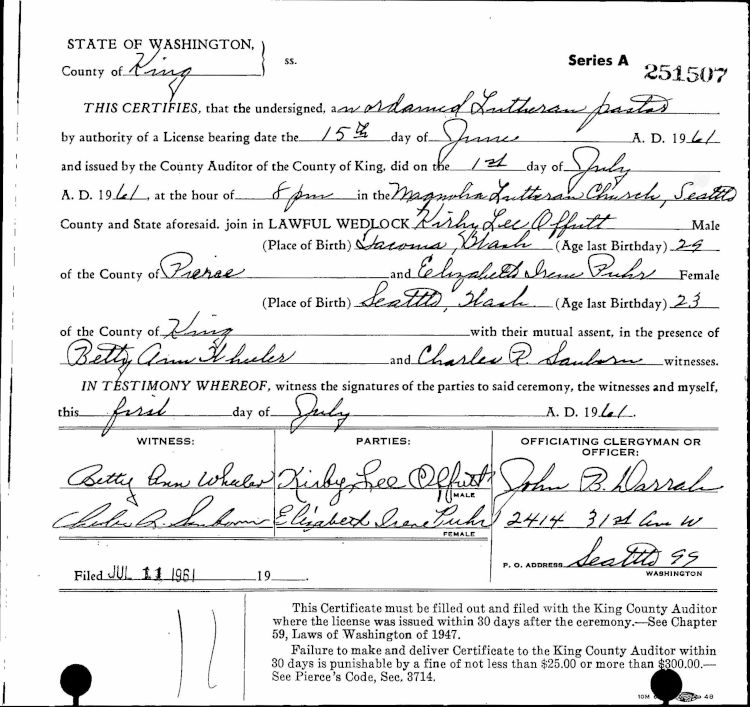 STATE OF WASHINGTON,
County of King
ss.
Series A 251507
THIS CERTIFIES, that the undersigned, an ordained Lutheran pastor
by authority of a License bearing date the 15th day of June A. D. 1961
and issued by the County Auditor of the County of King, did on the 1st day of July
A. D. 1961, at the hour of 8 pm in the Magnolia Lutheran Church, Seattle
County and State aforesaid, join in LAWFUL WEDLOCK Kirby Lee Offutt Male
(Place of Birth) Tacoma, Wash (Age last Birthday) 29
of the County of Pierce and Elizabeth Irene Puhr Female
(Place of Birth) Seattle, Wash. (Age last Birthday) 23
of the County of King with their mutual assent, in the presence of
Betty Ann Wheeler and Charles R. Sanborn witnesses.
IN TESTIMONY WHEREOF, witness the signatures of the parties to said ceremony, the witnesses and myself,
this first day of July A. D. 1961.
WITNESS: PARTIES: OFFICIATING CLERGYMAN OR OFFICER:
Betty Ann Wheeler Kirby Lee Offutt John B. Darrah
MALE
Charles R. Sanborn Elizabeth Irene Puhr 2414 31st Ave W
FEMALE
P. O. ADDRESS Seattle 99
WASHINGTON
Filed JUL 11 1961 19
This Certificate must be filled out and filed with the King County Auditor
where the license was issued within 30 days after the ceremony.—See Chapter
59, Laws of Washington of 1947.
Failure to make and deliver Certificate to the King County Auditor within
30 days is punishable by a fine of not less than $25.00 or more than $300.00.—
See Pierce's Code, Sec. 3714.
10M
48